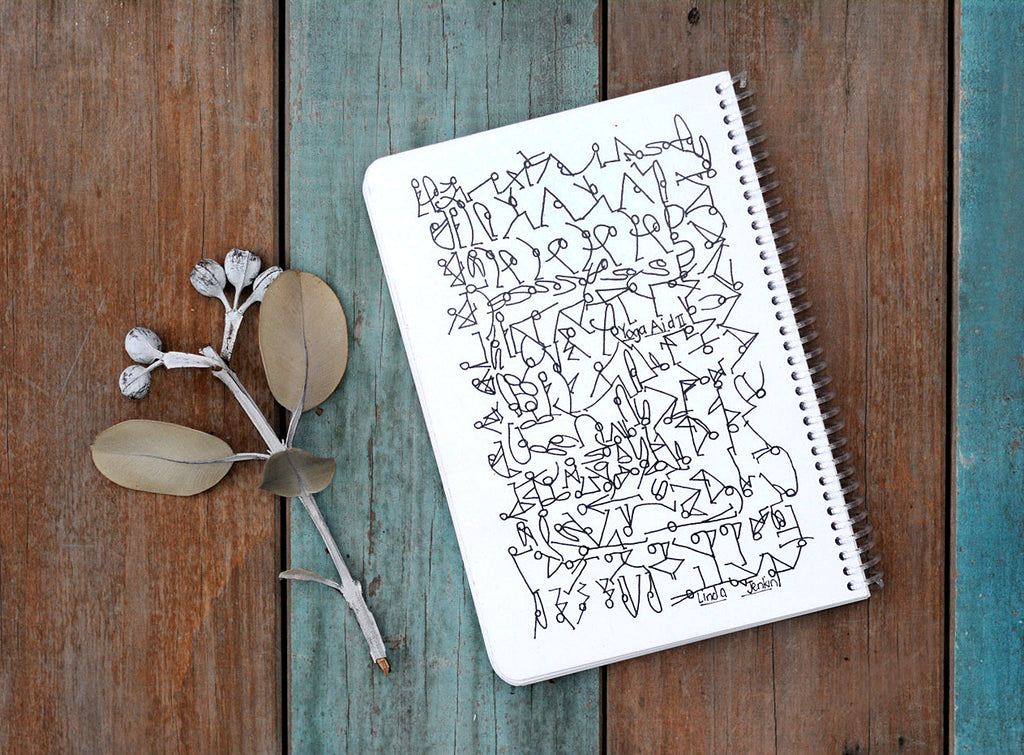 Yoga Aid II
Linda Jenkin